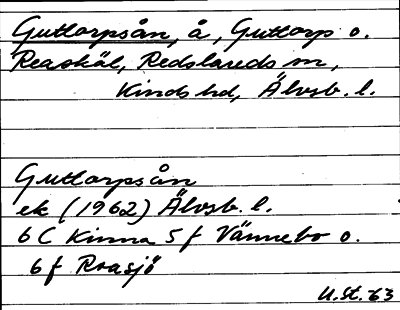 Guttorpsån, å, Guttorp o.
Reaskäl, Redslareds sn,
Kinds hd, Älvsb. l.
Guttorpsån
ek (1962) Älvsb. l.
6 C Kinna 5 f Vännebo o.
6 f Roasjö
U.St. 63